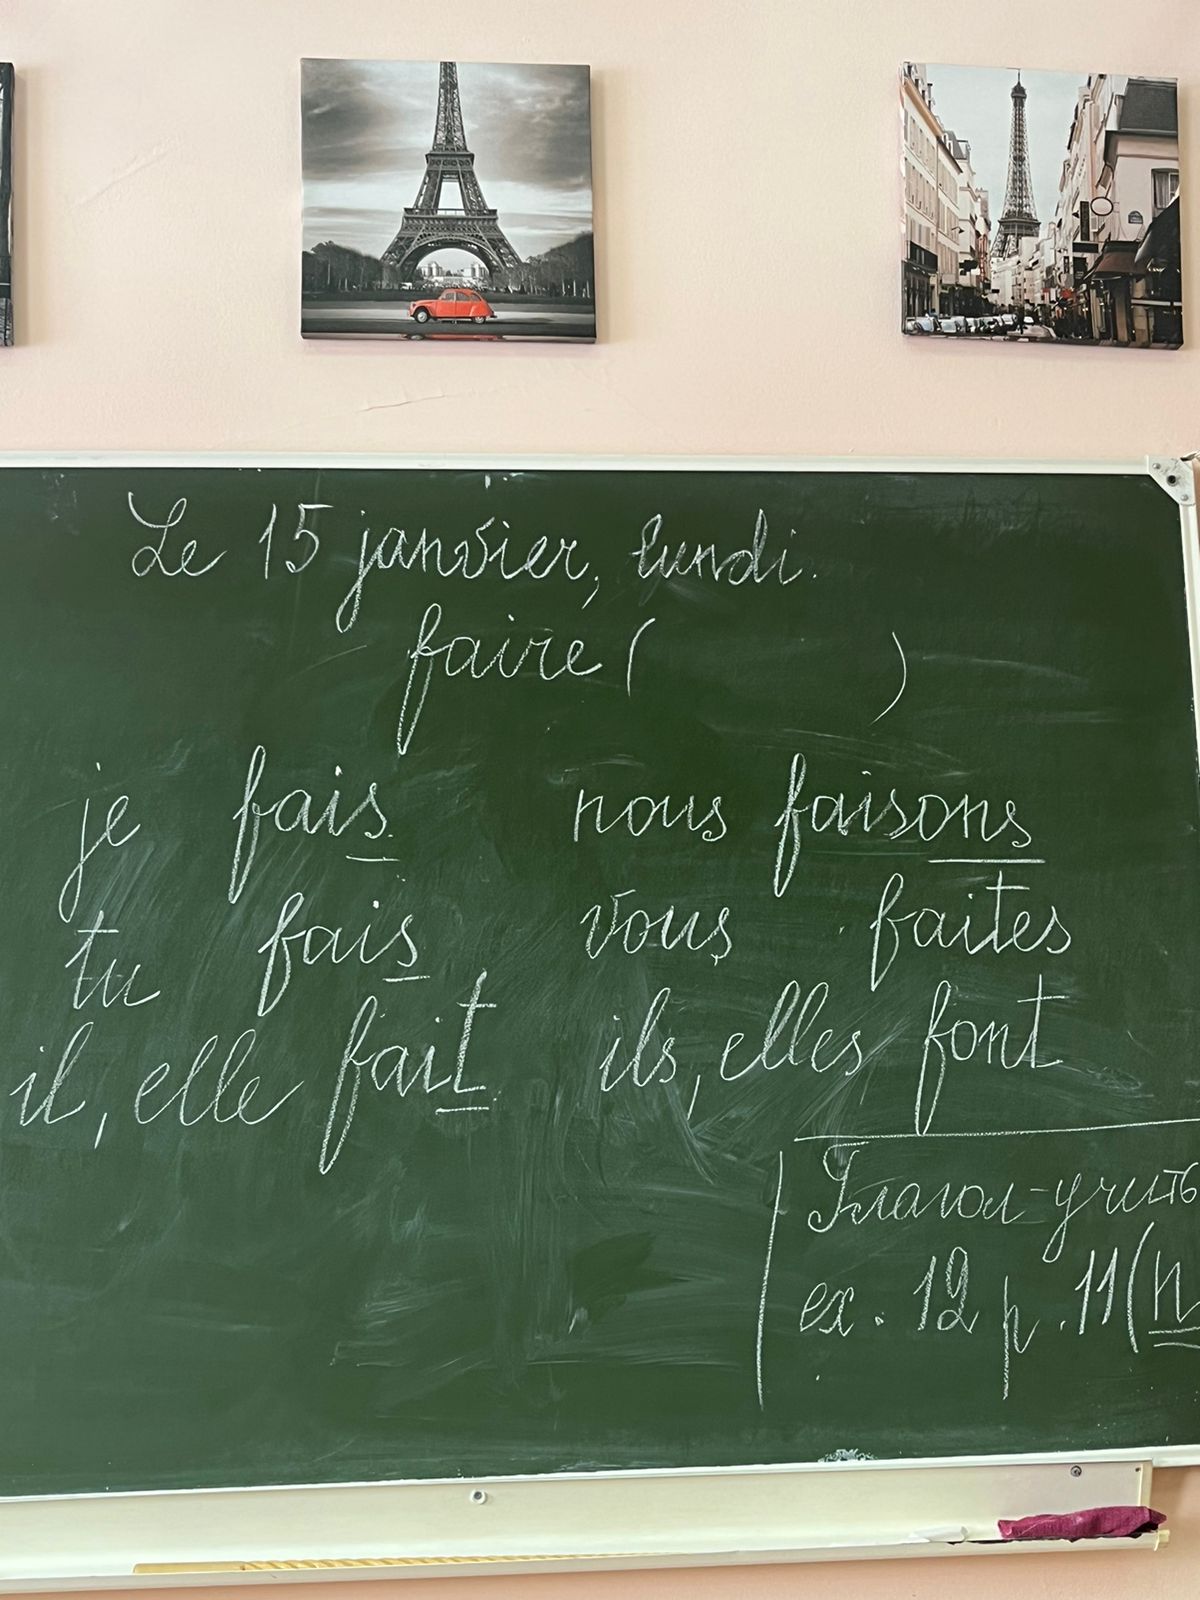 Le 15 janvier, lundi.
faire (                )
je fais nous faisons
tu fais vous faites
il, elle fait ils, elles font
Глагол-учить
ex. 12 p. 11 (п